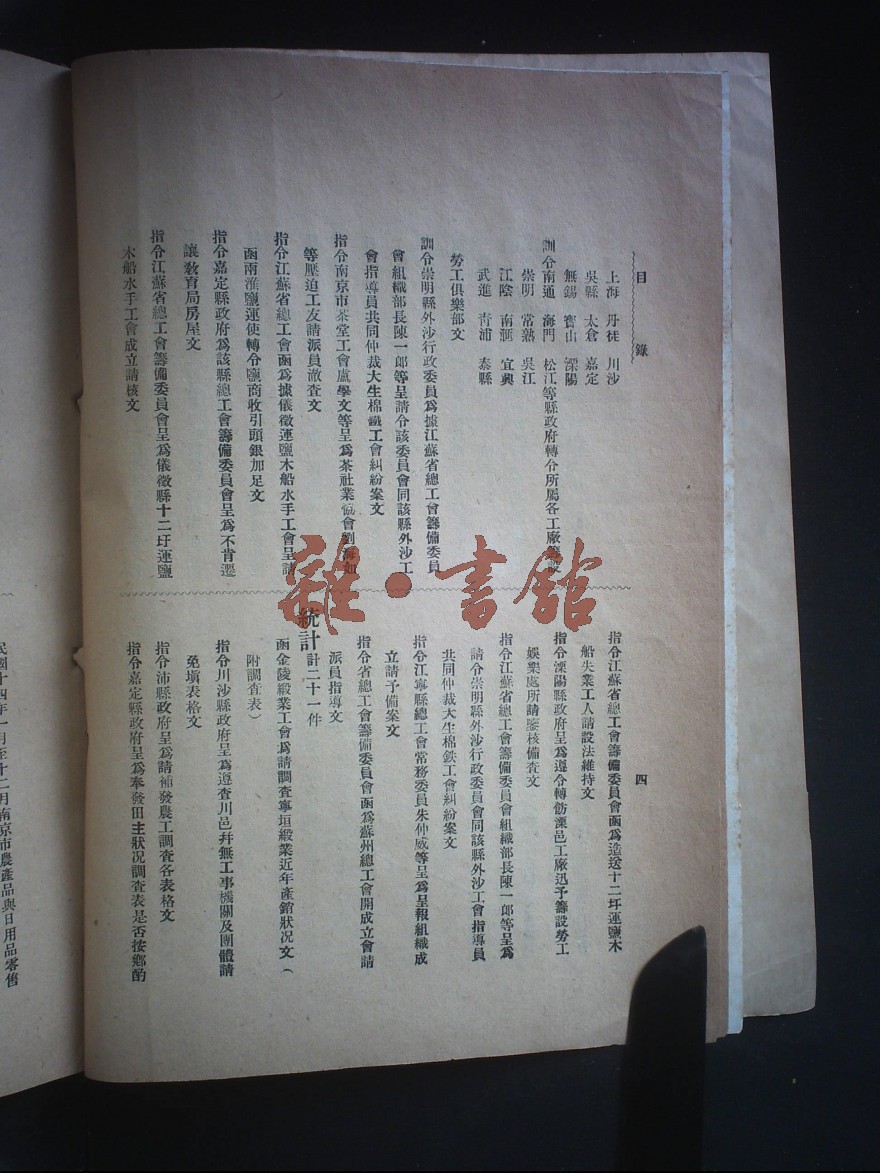 目錄
四
上海　丹徒　川沙
吳縣　太倉　嘉定
無錫　寶山　溧陽
訓令南通　海門　松江等縣政府轉令所屬各工廠籌設
崇明　常熟　吳江
江陰　南滙　宜興
武進　青浦　泰縣
勞工俱樂部文
訓令崇明縣外沙行政委員爲據江蘇省總工會籌備委員
會組織部長陳一郎等呈請令該委員會同該縣外沙工
會指導員共同仲裁大生棉鐵工會糾紛案文
指令南京市茶堂工會盧學文等呈爲茶社業協會劉海如
等壓迫工友請派員澈查文
指令江蘇省總工會函爲據儀徵運鹽木船水手工會呈請
函兩淮鹽運使轉令鹽商收引頭銀加足文
指令嘉定縣政府爲該縣總工會籌備委員會呈爲不肯遷
讓教育局房屋文
指令江蘇省總工會籌備委員會呈爲儀徵縣十二圩運鹽
木船水手工會成立請核文
指令江蘇省總工會籌備委員會函爲造送十二圩運鹽木
船失業工人請設法維持文
指令溧陽縣政府呈爲遵令轉飭溧邑工廠迅予籌設勞工
娛樂處所請鑒核備查文
指令江蘇省總工會籌備委員會組織部長陳一郎等呈爲
請令崇明縣外沙行政委員會同該縣外沙工會指導員
共同仲裁大生棉鉄工會糾紛案文
指令江寧縣總工會常務委員朱仲威等呈爲呈報組織成
立請予備案文
指令省總工會籌備委員會函爲蘇州總工會開成立會請
派員指導文
統計計二十一件
函金陵緞業工會爲請調查寧垣緞業近年產銷狀况文（
附調查表）
指令川沙縣政府呈爲遵查川邑幷無工事機關及團體請
免填表格文
指令沛縣政府呈爲請補發農工調查各表格文
指令嘉定縣政府呈爲奉發田主狀况調查表是否按鄉酌
民國十四年一月至十二月南京市農產品與日用品零售
雜·書館